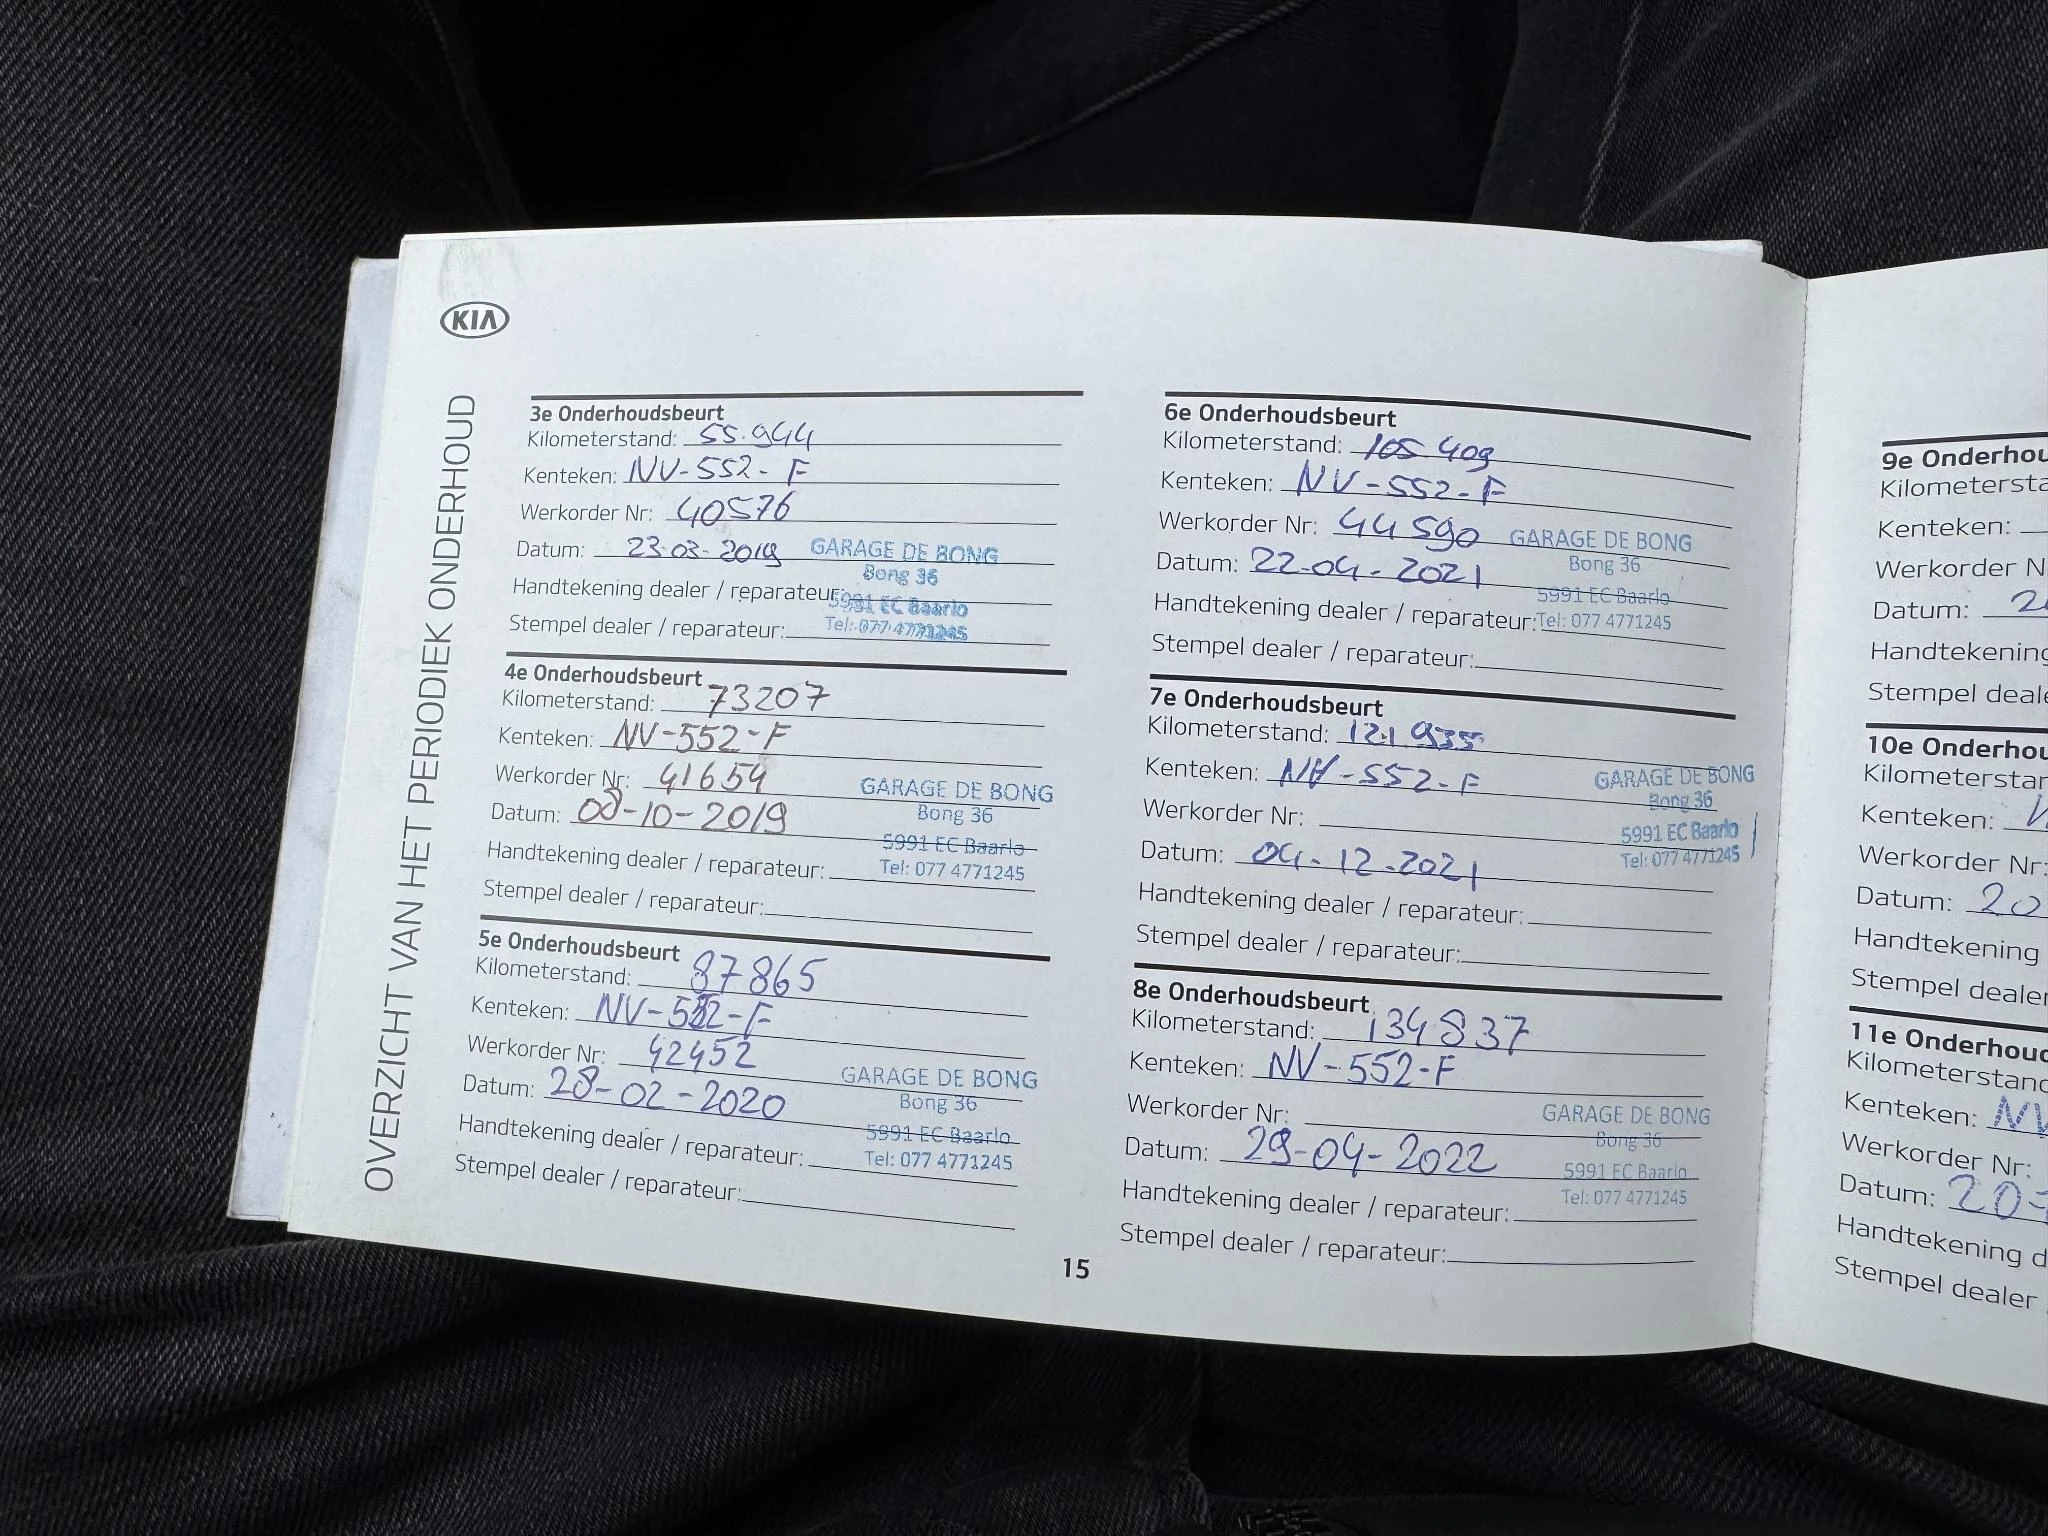 KIA
OVERZICHT VAN HET PERIODIEK ONDERHOUD
3e Onderhoudsbeurt
Kilometerstand: 55.944
Kenteken: NV-552-F
Werkorder Nr: 40576
Datum: 23-03-2019
Handtekening dealer / reparateur:
Stempel dealer / reparateur:
GARAGE DE BONG
Bong 36
5991 EC Baarlo
Tel: 077 4771245
4e Onderhoudsbeurt
Kilometerstand: 73207
Kenteken: NV-552-F
Werkorder Nr: 41654
Datum: 08-10-2019
Handtekening dealer / reparateur:
Stempel dealer / reparateur:
GARAGE DE BONG
Bong 36
5991 EC Baarlo
Tel: 077 4771245
5e Onderhoudsbeurt
Kilometerstand: 87865
Kenteken: NV-552-F
Werkorder Nr: 42452
Datum: 28-02-2020
Handtekening dealer / reparateur:
Stempel dealer / reparateur:
GARAGE DE BONG
Bong 36
5991 EC Baarlo
Tel: 077 4771245
6e Onderhoudsbeurt
Kilometerstand: 105 409
Kenteken: NV-552-F
Werkorder Nr: 44590
Datum: 22-04-2021
Handtekening dealer / reparateur:
Stempel dealer / reparateur:
GARAGE DE BONG
Bong 36
5991 EC Baarlo
Tel: 077 4771245
7e Onderhoudsbeurt
Kilometerstand: 121 935
Kenteken: NV-552-F
Werkorder Nr:
Datum: 04-12-2021
Handtekening dealer / reparateur:
Stempel dealer / reparateur:
GARAGE DE BONG
Bong 36
5991 EC Baarlo
Tel: 077 4771245
8e Onderhoudsbeurt
Kilometerstand: 134837
Kenteken: NV-552-F
Werkorder Nr:
Datum: 29-04-2022
Handtekening dealer / reparateur:
Stempel dealer / reparateur:
GARAGE DE BONG
Bong 36
5991 EC Baarlo
Tel: 077 4771245
15
9e Onderhou
Kilometersta
Kenteken:
Werkorder N
Datum: 2
Handtekening
Stempel deale
10e Onderhou
Kilometerstan
Kenteken:
Werkorder Nr:
Datum: 20
Handtekening
Stempel dealer
11e Onderhoud
Kilometerstand
Kenteken: NV
Werkorder Nr:
Datum: 20-
Handtekening d
Stempel dealer